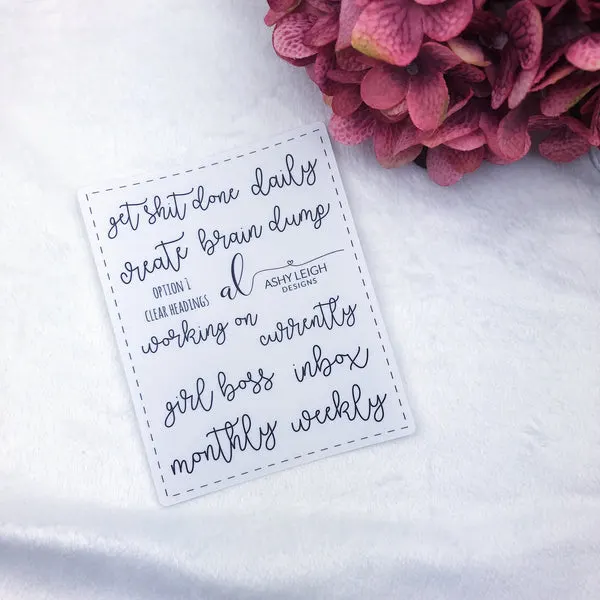 get shit done daily
create brain dump
OPTION 1
CLEAR HEADINGS
al
ASHY LEIGH
DESIGNS
working on currently
girl boss inbox
monthly weekly